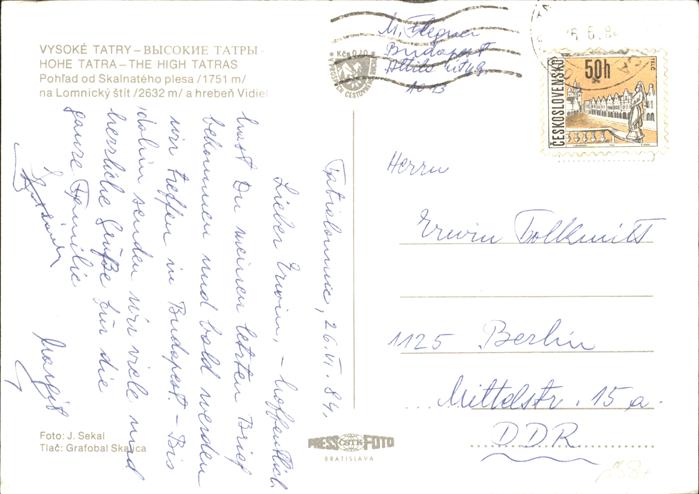 VYSOKÉ TATRY – ВЫСОКИЕ ТАТРЫ -
HOHE TATRA – THE HIGH TATRAS
Pohľad od Skalnatého plesa /1751 m/
na Lomnický štít /2632 m/ a hrebeň Vidiel
Kčs 0,70
M.
Budapest
Attila út
ČESKOSLOVENSKO
50h
TELČ
Tatralomnic, 26.VI.84.
Lieber Erwin, – hoffentlich
hast Du meinen letzten Brief
bekommen und bald werden
wir treffen in Budapest – Bis
dahin senden wir viele und
herzliche Grüße für die
ganze Familie
Margit
Herrn
Erwin Tollkmitt
1125 Berlin
Mittelstr. 15 a.
DDR
Foto: J. Sekal
Tlač: Grafobal Skalica
PRESS ČSTK FOTO
BRATISLAVA